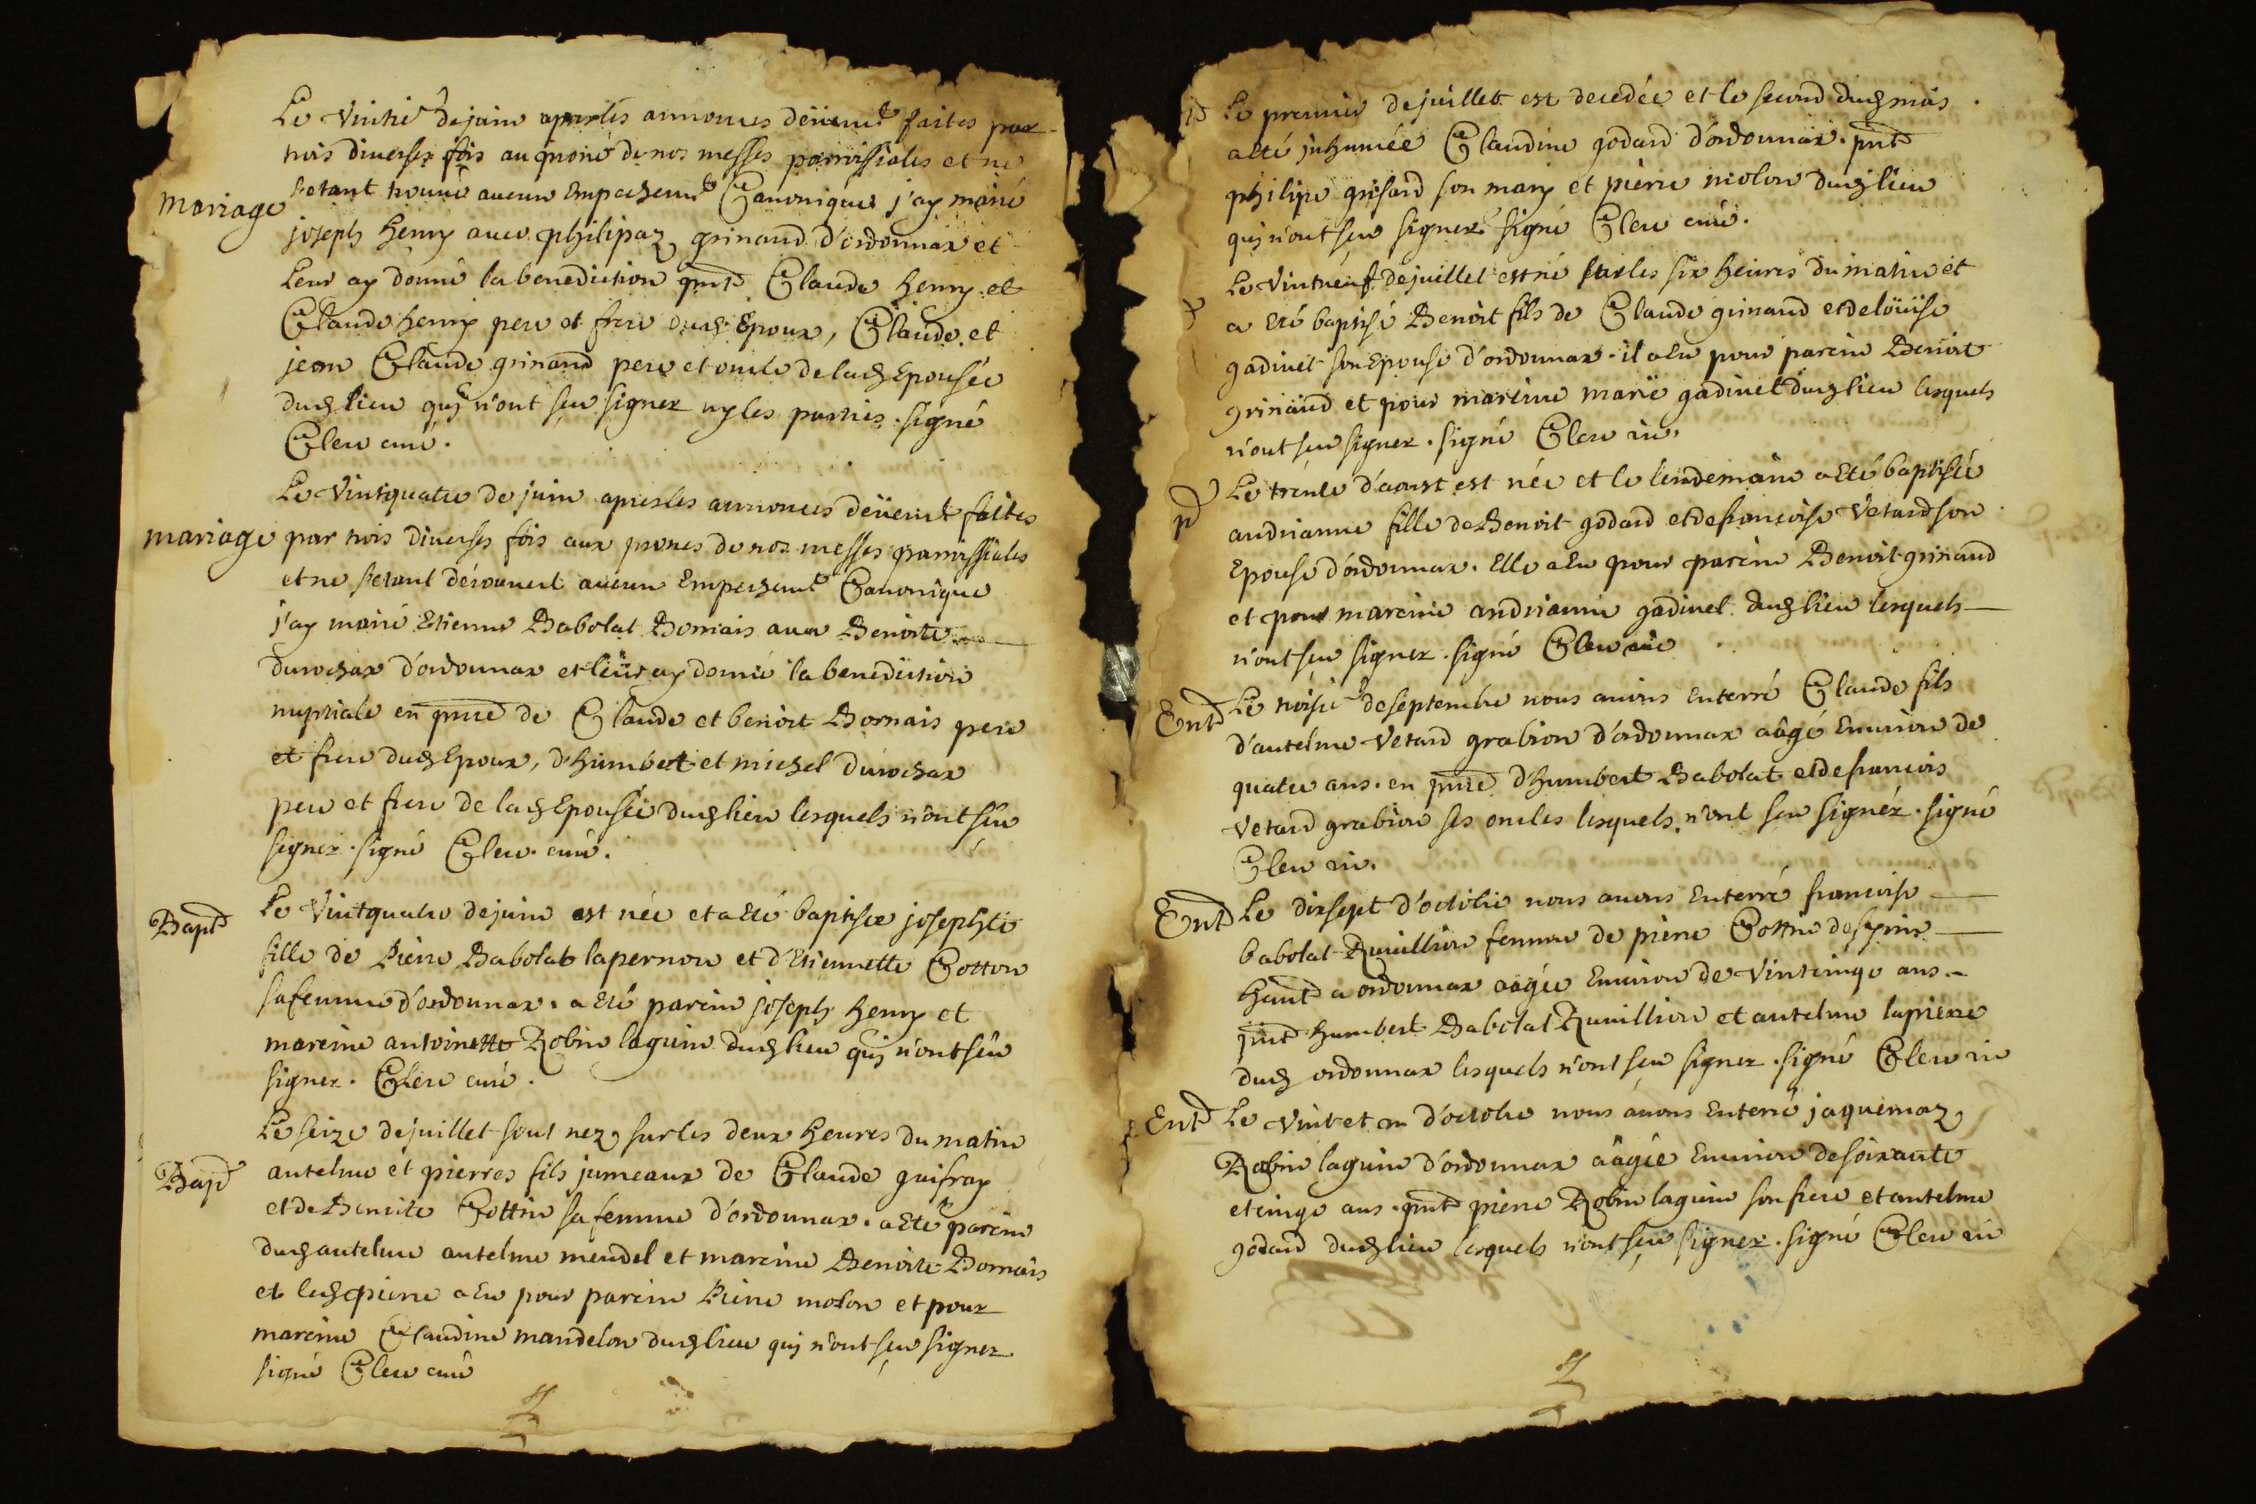 Le Vintie de juin apres les annonces deüemt faites par
trois diverses fois au prone de nos messes parroissiales et ne
s'etant trouvé aucun Empechemt Canonique j'ay marié
Mariage
joseph henry avec philipaz grinand d'ordonnax et
Leur ay donné la benediction pnt Claude henry et
Claude henry pere et frere dud Epoux, Claude et
jean Claude grinand pere et oncle de lad Epousée
dud lieu quj n'ont sçu signer ny les parties. signé
Clerc curé.
Le Vintquatre de juin apres les annonces deüemt faites
mariage par trois diverses fois aux prones de nos messes parroissiales
et ne s'etant decouvert aucun Empechemt Canonique
j'ay marié Etienne Babolat Bornais avec Benoite
durochax d'ordonnax et leur ay donné la benediction
nuptiale en pnce de Claude et benoit Bornais pere
et frere dud Epoux, d'humbert et michel durochax
pere et frere de lad Epousée dud lieu lesquels n'ont sçu
signer. signé Clerc curé.
Bapt Le Vintquatre de juin est née et a eté baptisée josephte
fille de Pierre Babolat lapernon et d'Etiennette Cotton
sa femme d'ordonnax. a eté parein joseph henry et
mareine antoinette Robin laguin dud lieu quj n'ont sçu
signer. Clerc curé.
Le seize de juillet sont nez sur les deux heures du matin
Bapt antelme et pierre fils jumeaux de Claude guifray
et de Benoite Cottin sa femme d'ordonnax. a eté parein
dud antelme antelme mendel et mareine Benoite Bornais
et led pierre a eu pour parein Pierre molon et pour
mareine Claudine mandelon dud lieu quj n'ont sçu signer
signé Clerc curé
Le premier de juillet est decedée et le second dud mois
a eté jnhumée Claudine godard d'ordonnax. pnt
philipe grisard son mary et pierre molon dud lieu
quj n'ont sçu signer. signé Clerc curé.
Le Vintneuf de juillet est né sur les six heures du matin et
a eté baptisé Benoit fils de Claude grinand et de loüise
gadinet son Epouse d'ordonnax. il a eu pour parein Benoit
grinand et pour mareine marie gadinet dud lieu lesquels
n'ont sçu signer. signé Clerc cu.
Le trente d'aoust est née et le lendemain a eté baptisée
andrianne fille de Benoit godard et de francoise Vetard son
Epouse d'ordonnax. Elle a eu pour parein Benoit grinand
et pour mareine andrianne gadinet dud lieu lesquels
n'ont sçu signer. signé Clerc cu
Ent Le troisie de septembre nous avons Enterré Claude fils
d'antelme Vetard grabion d'ordonnax aâgé Environ de
quatre ans. en pnce d'humbert Babolat et de francois
Vetard grabion ses oncles lesquels n'ont sçu signer. signé
Clerc cu.
Ent Le dixsept d'octobre nous avons Enterré francoise
babolat Ruvillion femme de pierre Cottin
hant a ordonnax aâgée Environ de Vintcinqe ans.
pnt humbert Babolat Ruvillion et antelme lapierre
dud ordonnax lesquels n'ont sçu signer. signé Clerc cu
Ent Le Vint et un d'octobre nous avons Enterré jaquemaz
Robin laguin d'ordonnax aâgée Environ de soixante
et cinqe ans. pnt pierre Robin laguin son frere et antelme
godard dud lieu lesquels n'ont sçu signer. signé Clerc cu